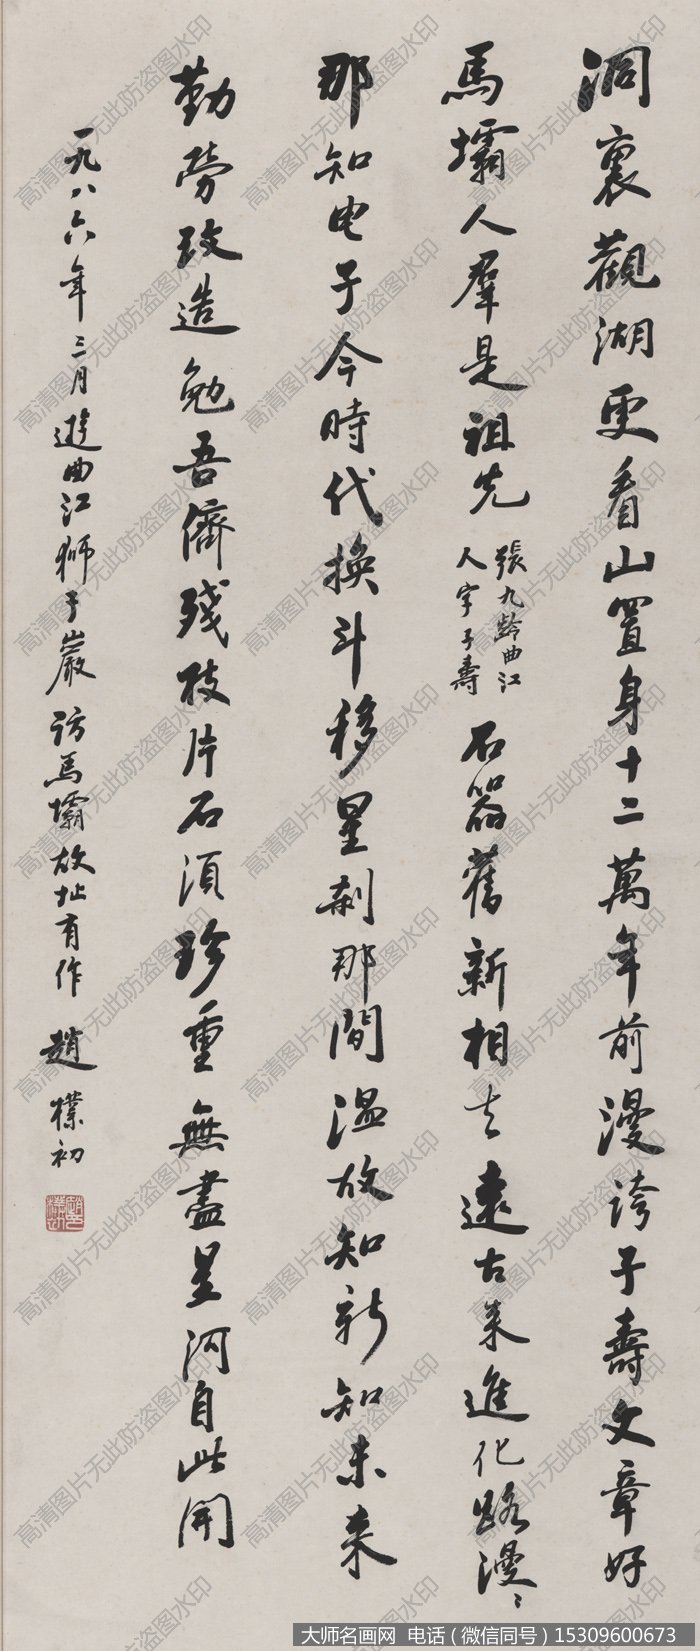 洞裏觀湖更看山置身十二萬年前漫誇子壽文章好
馬壩人羣是祖先
張九齡曲江
人字子壽
石器舊新相去遠古來進化路漫〻
那知电子今時代換斗移星刹那間溫故知新知未来
勤勞改造勉吾儕殘枝片石須珍重無盡星河自此開
一九八六年三月遊曲江獅子巖訪馬壩故址有作 趙樸初
高清图片无此防盗图水印
大师名画网 电话(微信同号)15309600673